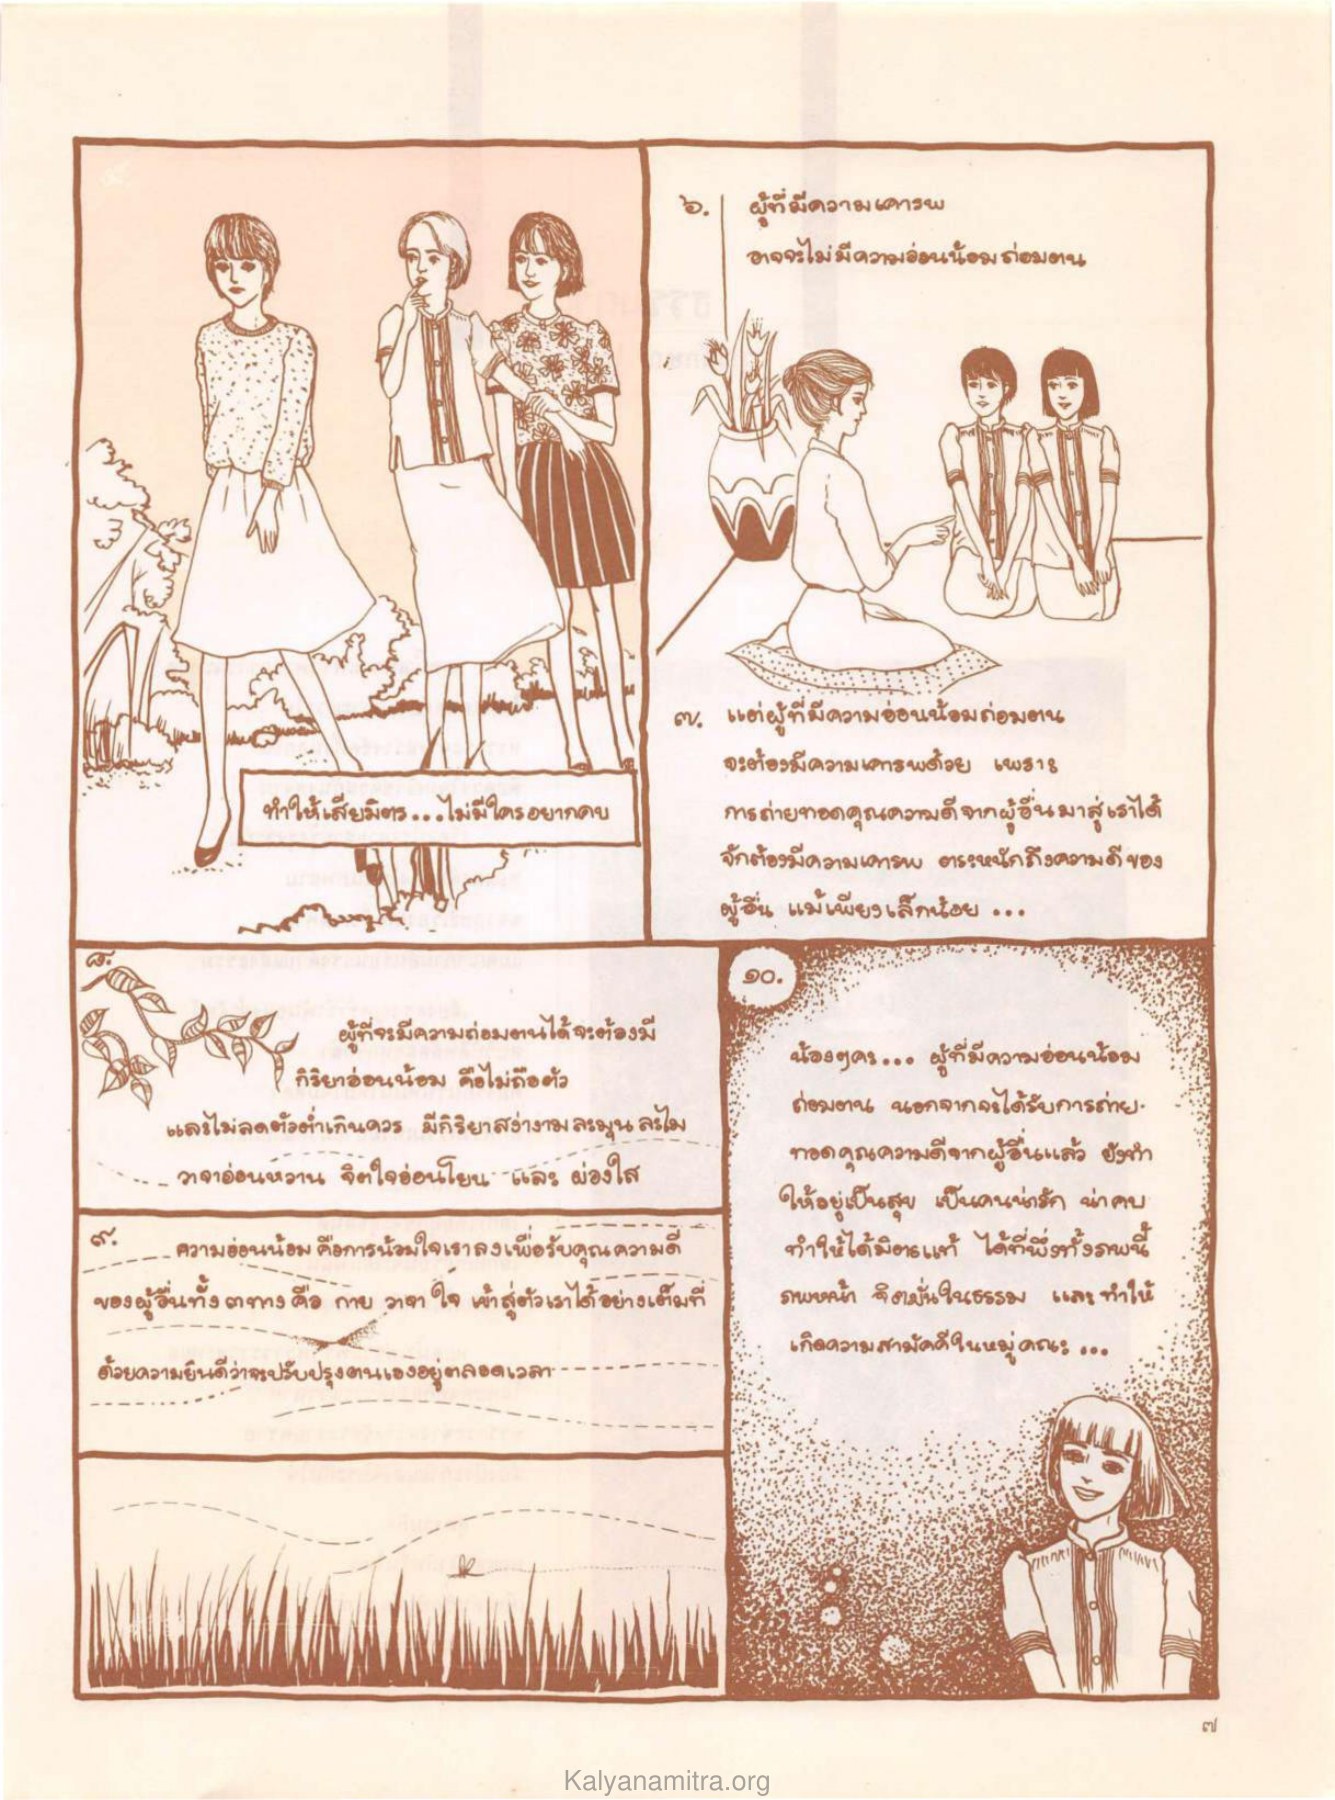 ทำให้เสียมิตร...ไม่มีใครอยากคบ
๖. ผู้ที่มีความเคารพ
อาจจะไม่มีความอ่อนน้อมถ่อมตน
๗. แต่ผู้ที่มีความอ่อนน้อมถ่อมตน
จะต้องมีความเคารพด้วย เพราะ
การถ่ายทอดคุณความดีจากผู้อื่นมาสู่เราได้
จักต้องมีความเคารพ ตระหนักถึงความดีของ
ผู้อื่น แม้เพียงเล็กน้อย ...
๘.
ผู้ที่จะมีความถ่อมตนได้จะต้องมี
กิริยาอ่อนน้อม คือไม่ถือตัว
และไม่ลดตัวต่ำเกินควร มีกิริยาสง่างามละมุนละไม
วาจาอ่อนหวาน จิตใจอ่อนโยน และ ผ่องใส
๙. ความอ่อนน้อม คือการน้อมใจเราลงเพื่อรับคุณความดี
ของผู้อื่นทั้ง ๓ ทาง คือ กาย วาจา ใจ เข้าสู่ตัวเราได้อย่างเต็มที่
ด้วยความยินดีว่าจะปรับปรุงตนเองอยู่ตลอดเวลา
๑๐.
น้องๆคะ... ผู้ที่มีความอ่อนน้อม
ถ่อมตน นอกจากจะได้รับการถ่าย-
ทอดคุณความดีจากผู้อื่นแล้ว ยังทำ
ให้อยู่เป็นสุข เป็นคนน่ารัก น่าคบ
ทำให้ได้มิตรแท้ ได้ที่พึ่งทั้งภพนี้
ภพหน้า จิตมั่นในธรรม และทำให้
เกิดความสามัคคีในหมู่คณะ ...
๗
Kalyanamitra.org